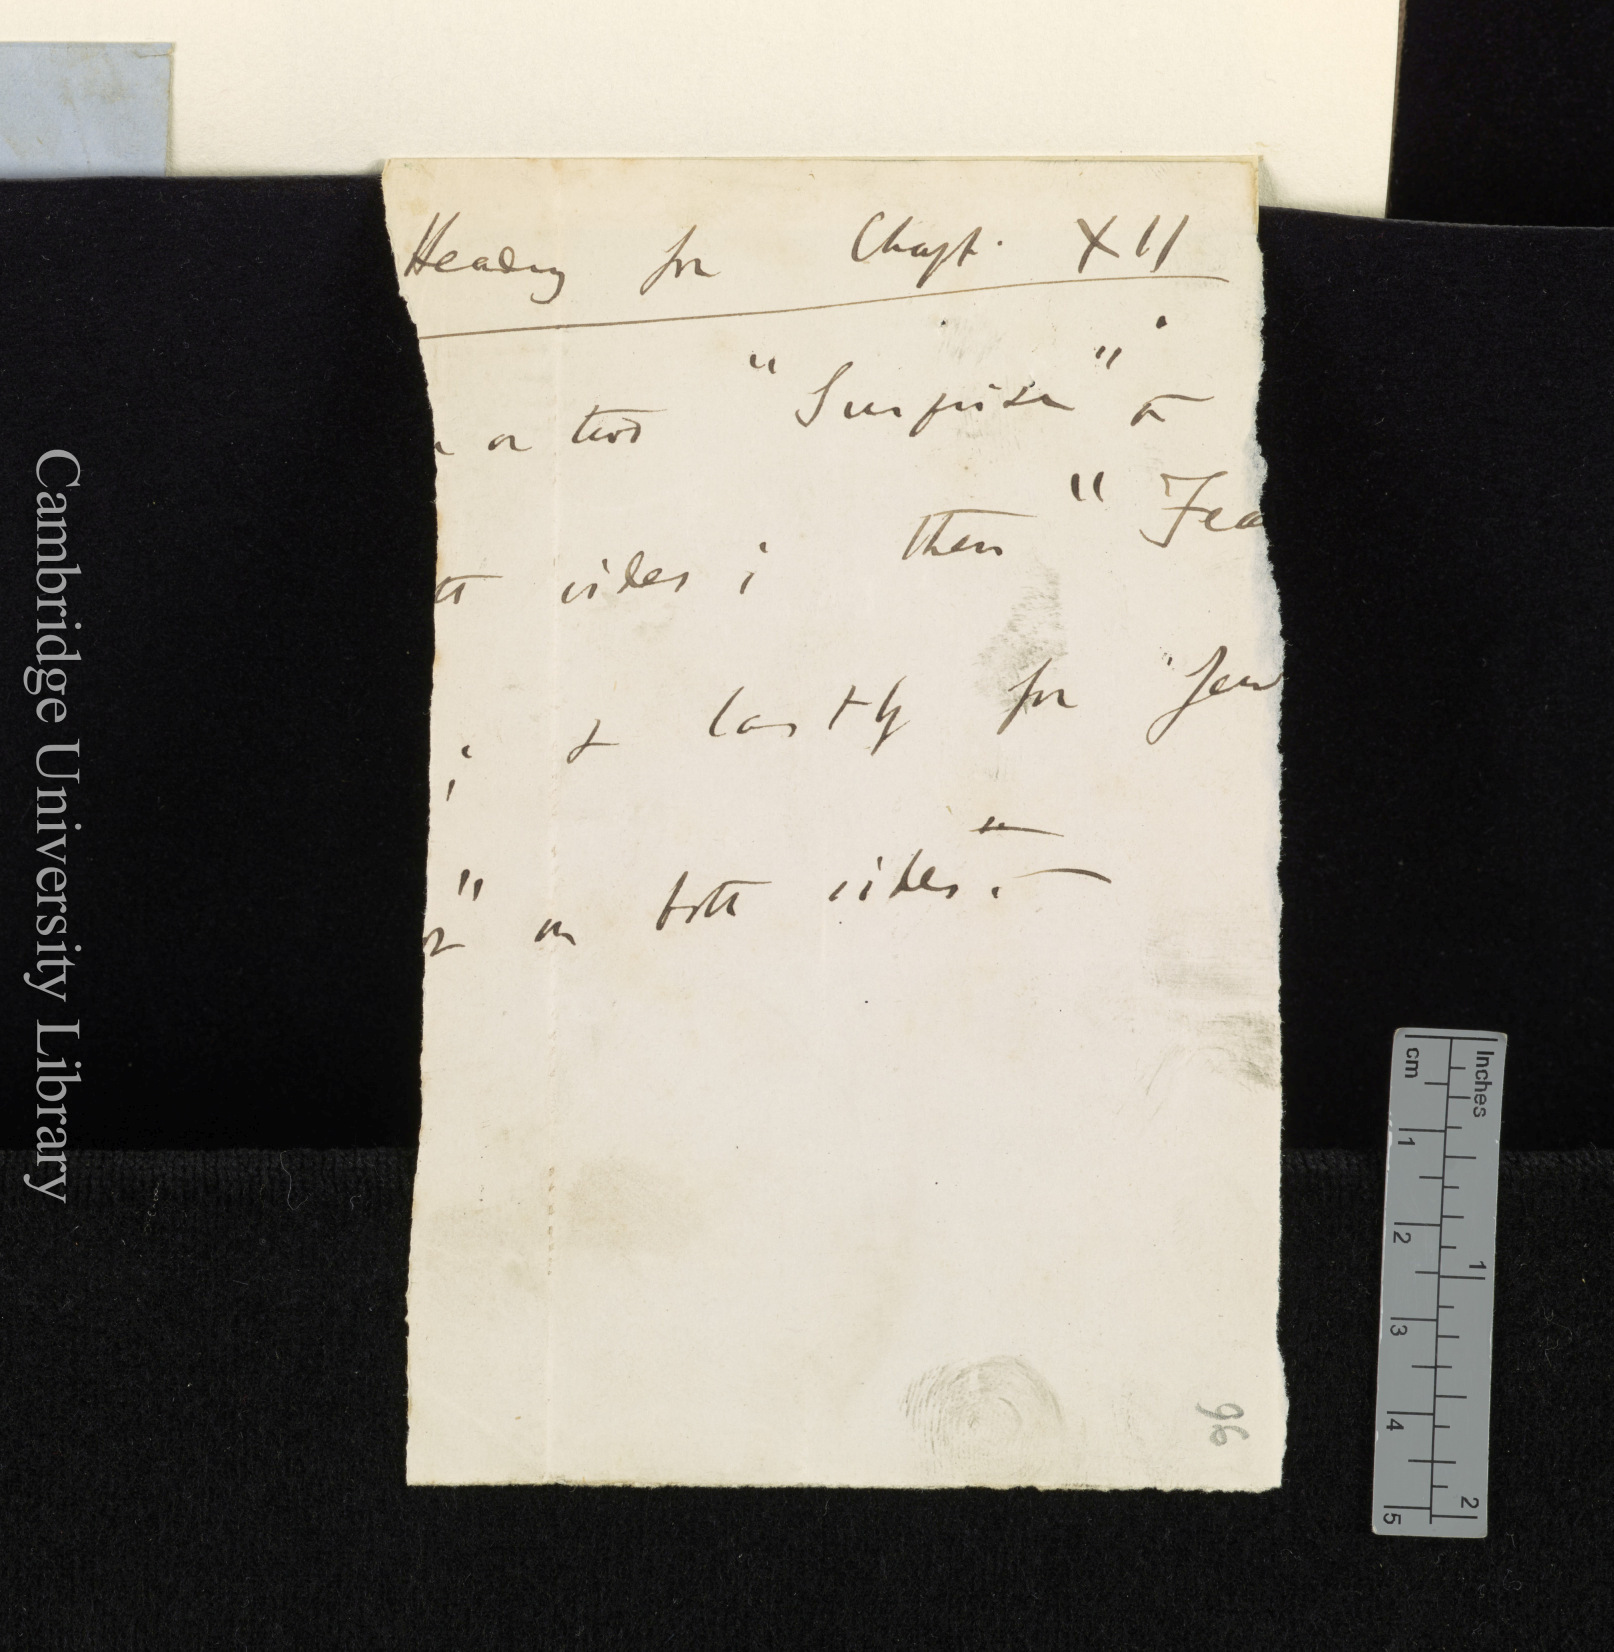 Heading for Chapt. XII
or two "Surprise" on
th sides; then "Fea
; & lastly for few
" on both sides.—
96
Cambridge University Library
Inches
cm
1
2
3
4
5
1
2